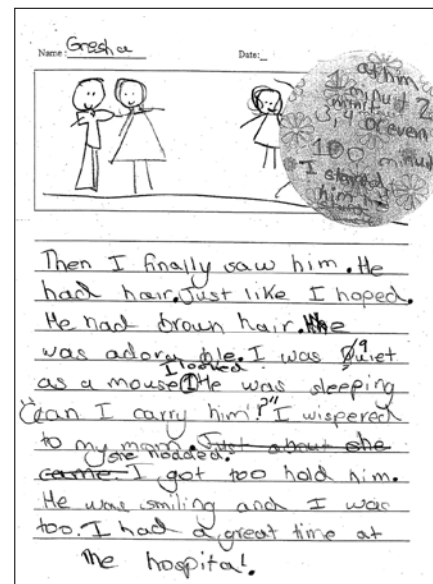 Name: Gresha
Date:
at him
1 minuit 2
minit
3, 4 or even
100 minuit
I stared
him
Then I finally saw him. He
had hair. Just like I hoped.
He had brown hair. He
was adorable. I was quiet
I looked
as a mouse. He was sleeping
"Can I carry him?" I wispered
to my mom. Just about she
she nodded.
came. I got too hold him.
He was smiling and I was
too. I had a great time at
the hospital.